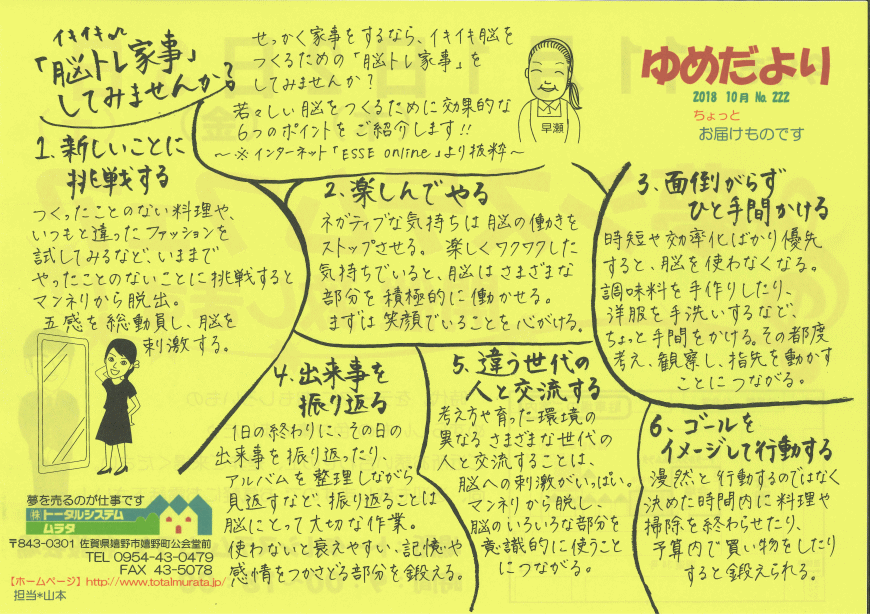 イキイキ♪
「脳トレ家事」
してみませんか?
せっかく家事をするなら、イキイキ脳を
つくるための「脳トレ家事」を
してみませんか?
若々しい脳をつくるために効果的な
6つのポイントをご紹介します!!
~※インターネット「ESSE online」より抜粋~
早瀬
ゆめだより
2018 10月 No. 222
ちょっと
お届けものです
1. 新しいことに
挑戦する
つくったことのない料理や、
いつもと違ったファッションを
試してみるなど、いままで
やったことのないことに挑戦すると
マンネリから脱出。
五感を総動員し、脳を
刺激する。
2. 楽しんでやる
ネガティブな気持ちは脳の働きを
ストップさせる。 楽しくワクワクした
気持ちでいると、脳はさまざまな
部分を積極的に働かせる。
まずは笑顔でいることを心がける。
3. 面倒がらず
ひと手間かける
時短や効率化ばかり優先
すると、脳を使わなくなる。
調味料を手作りしたり、
洋服を手洗いするなど、
ちょっと手間をかける。その都度
考え、観察し、指先を動かす
ことにつながる。
4. 出来事を
振り返る
1日の終わりに、その日の
出来事を振り返ったり、
アルバムを整理しながら
見返すなど、振り返ることは
脳にとって大切な作業。
使わないと衰えやすい、記憶や
感情をつかさどる部分を鍛える。
5. 違う世代の
人と交流する
考え方や育った環境の
異なるさまざまな世代の
人と交流することは、
脳への刺激がいっぱい。
マンネリから脱し、
脳のいろいろな部分を
意識的に使うこと
につながる。
6、ゴールを
イメージして行動する
漫然と行動するのではなく
決めた時間内に料理や
掃除を終わらせたり、
予算内で買い物をしたり
すると鍛えられる。
夢を売るのが仕事です
株 トータルシステム
ムラタ
〒843-0301 佐賀県嬉野市嬉野町公会堂前
TEL 0954-43-0479
FAX 43-5078
【ホームページ】http://www.totalmurata.jp/
担当*山本